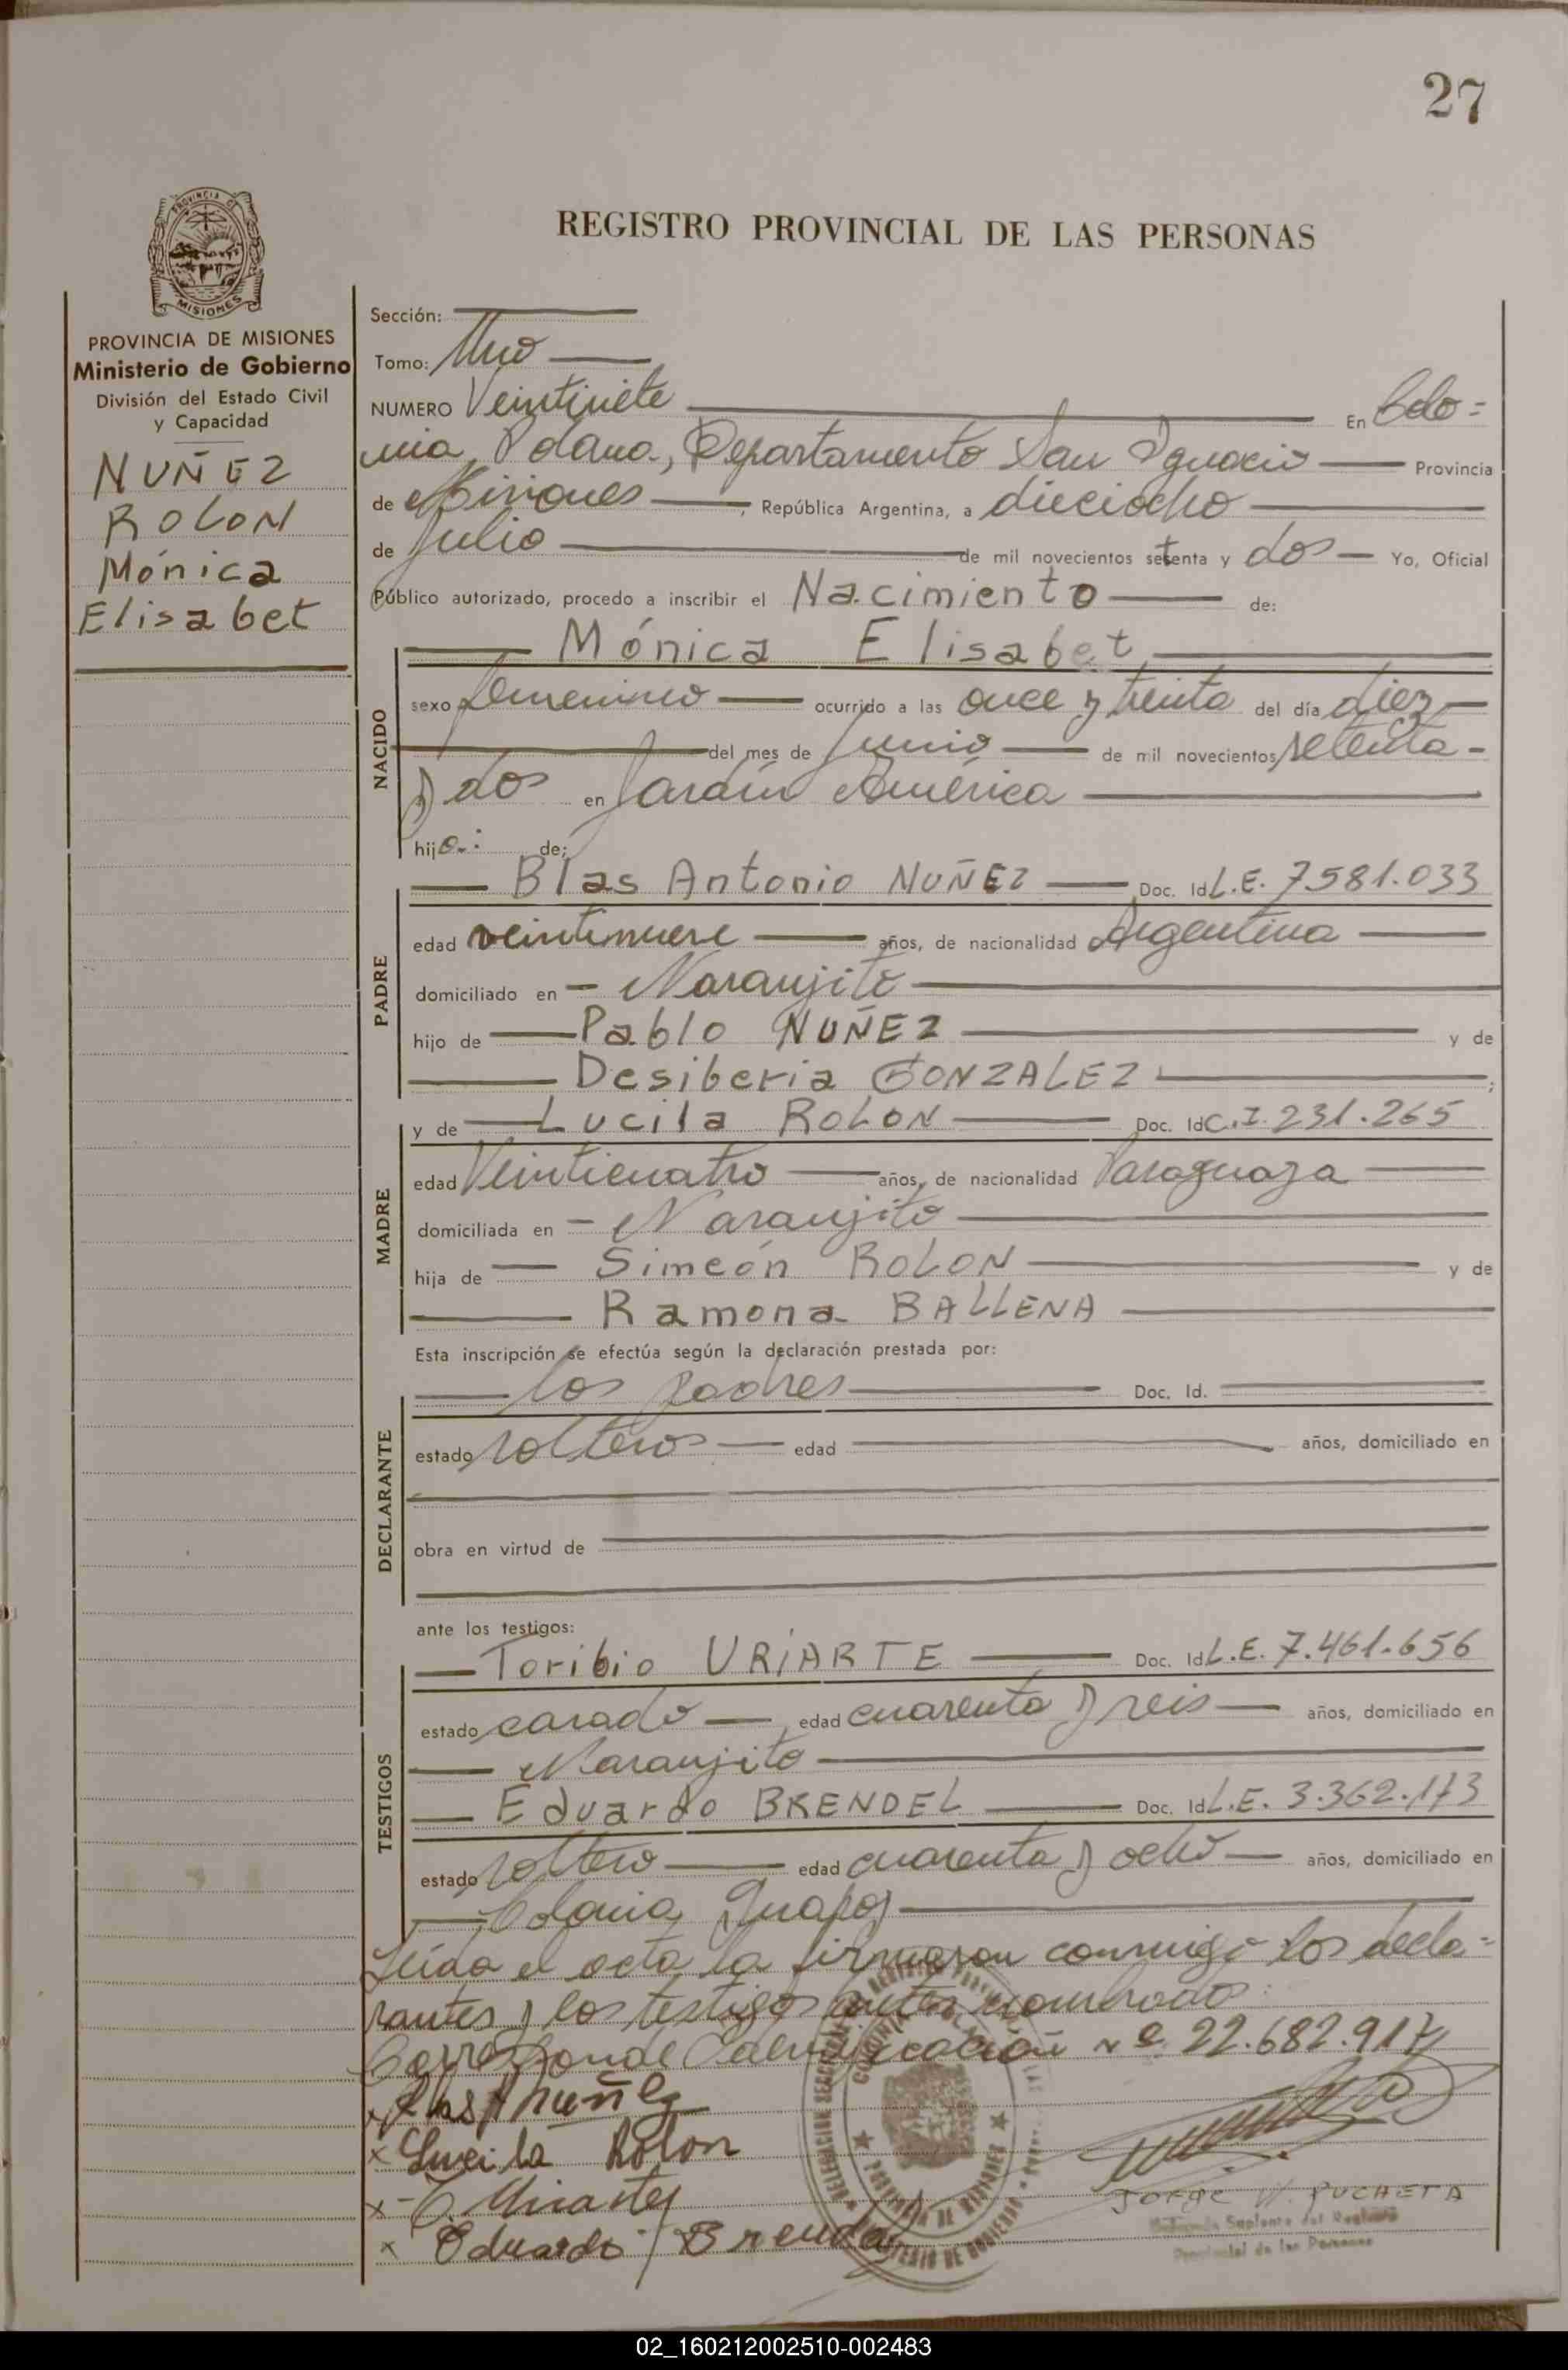 27
PROVINCIA DE
MISIONES
REGISTRO PROVINCIAL DE LAS PERSONAS
PROVINCIA DE MISIONES
Ministerio de Gobierno
División del Estado Civil
y Capacidad
NUÑEZ
ROLON
Mónica
Elisabet
Sección:
Tomo: Uno
NUMERO Veintisiete En Colo=
nia Polana, Departamento San Ignacio Provincia
de Misiones, República Argentina, a dieciocho
de Julio de mil novecientos setenta y dos Yo, Oficial
Público autorizado, procedo a inscribir el Nacimiento de:
NACIDO
Mónica Elisabet
sexo femenino ocurrido a las once y treinta del día diez
del mes de Junio de mil novecientos setenta
y dos en Jardín América
hija: de;
PADRE
Blas Antonio NUÑEZ Doc. Id L.E. 7581.033
edad veintinueve años, de nacionalidad Argentina
domiciliado en Naranjito
hijo de Pablo NUÑEZ y de
Desiberia GONZALEZ ;
MADRE
y de Lucila ROLON Doc. Id C.I. 231.265
edad Veinticuatro años, de nacionalidad Paraguaya
domiciliada en Naranjito
hija de Simeón ROLON y de
Ramona BALLENA
Esta inscripción se efectúa según la declaración prestada por:
DECLARANTE
los padres Doc. Id.
estado solteros edad años, domiciliado en
obra en virtud de
ante los testigos:
TESTIGOS
Toribio URIARTE Doc. Id L.E. 7.461.656
estado casado edad cuarenta y seis años, domiciliado en
Naranjito
Eduardo BRENDEL Doc. Id L.E. 3.362.173
estado soltero edad cuarenta y ocho años, domiciliado en
Colonia Guapoy
Leída el acta la firmaron conmigo los decla=
rantes y los testigos antes nombrados:
Corresponde Identificación Nº 22.682.917
x Blas A Nuñez
x Lucila Rolon
x T. Uriarte
x Eduardo Brendel
JORGE W. PUCHETA
Suplente del Registro
Provincial de las Personas
02_160212002510-002483